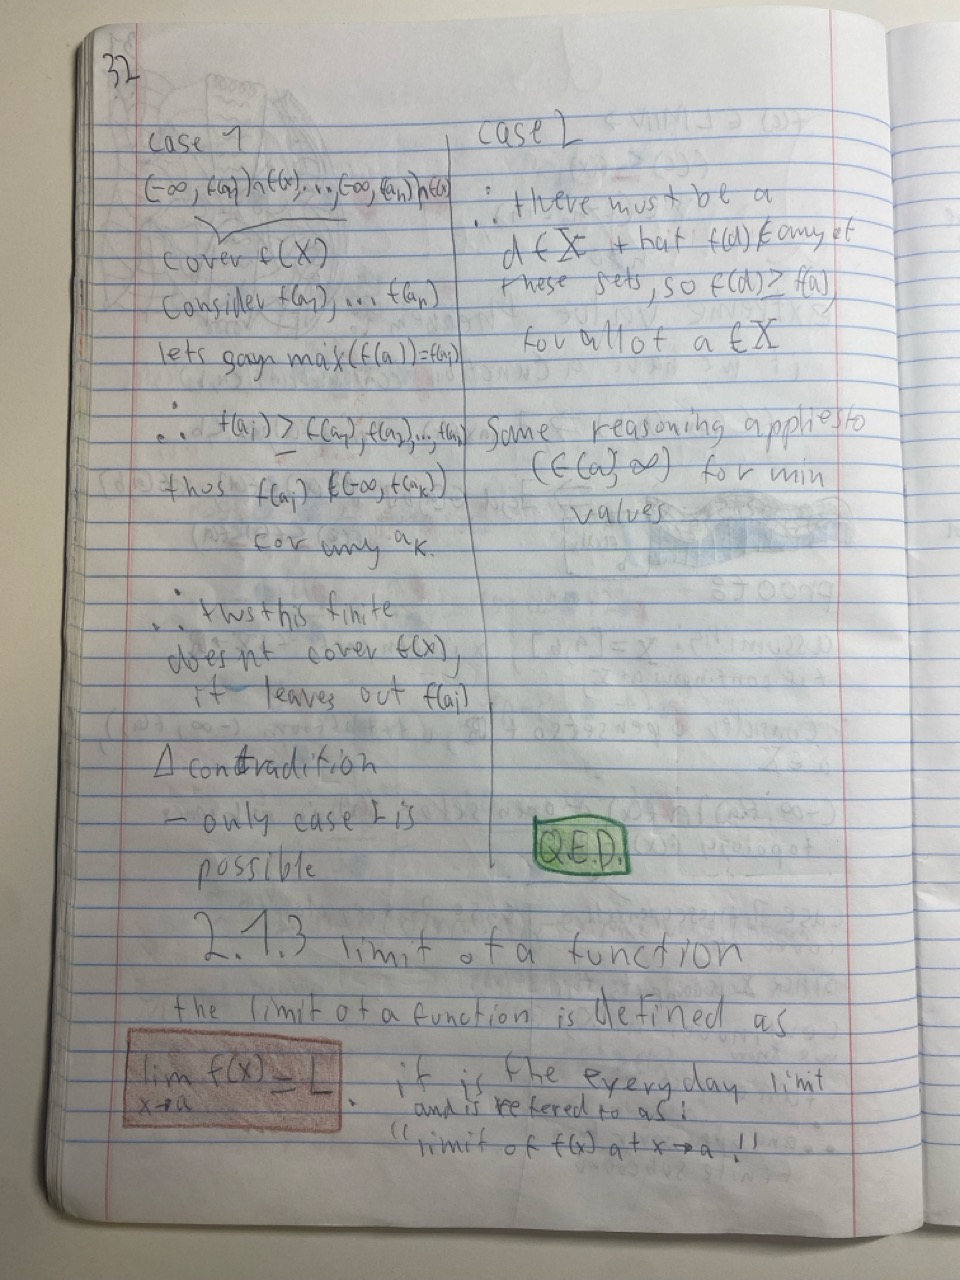 32
case 1
(-∞, f(a1))∩f(x), ..., (-∞, f(an))∩f(x)
cover f(X)
Consider f(a1), ... f(an)
lets say max(f(a))=f(ai)
∴ f(ai) ≥ f(a1), f(a2), ..., f(an)
thus f(ai) ∉ (-∞, f(ak))
for any ak.
∴ thus this finite
doesnt cover f(x),
it leaves out f(ai)
Δ contradition
- only case 2 is
possible
case 2
∴ there must be a
d ∈ X that f(d) ∉ any of
these sets, so f(d) ≥ f(a)
for all of a ∈ X
Same reasoning applies to
(f(a), ∞) for min
values
Q.E.D.
2.1.3 limit of a function
the limit of a function is defined as
lim f(x) = L . it is the every day limit
x→a
and is refered to as:
"limit of f(x) at x→a !"